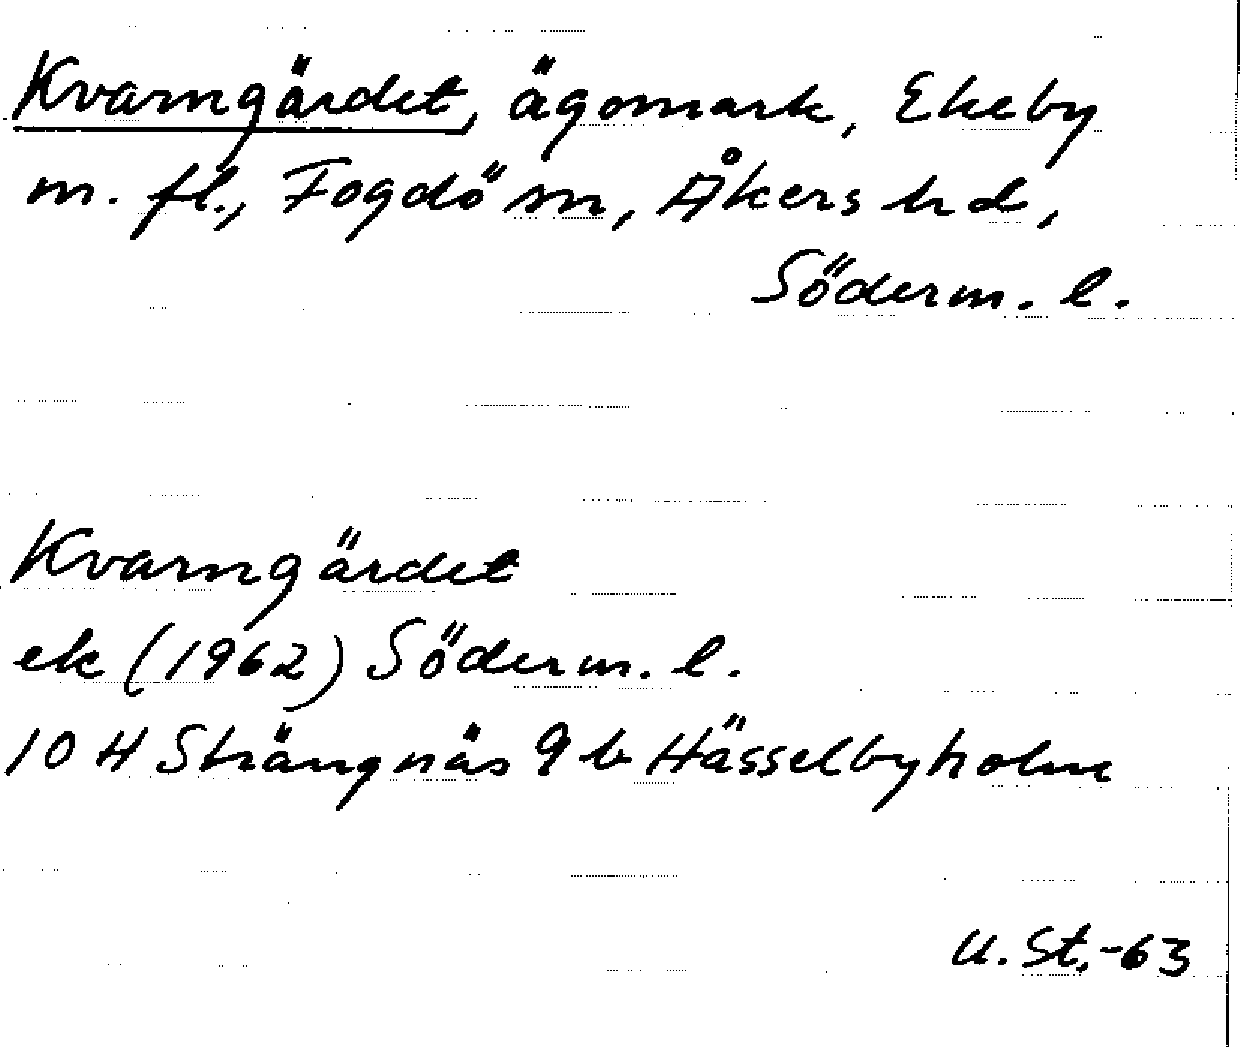 Kvarngärdet, ägomark, Ekeby
m. fl., Fogdö sn, Åkers hd,
Söderm. l.
Kvarngärdet
ek (1962) Söderm. l.
10 H Strängnäs 9 b Hässelbyholm
U. St.-63